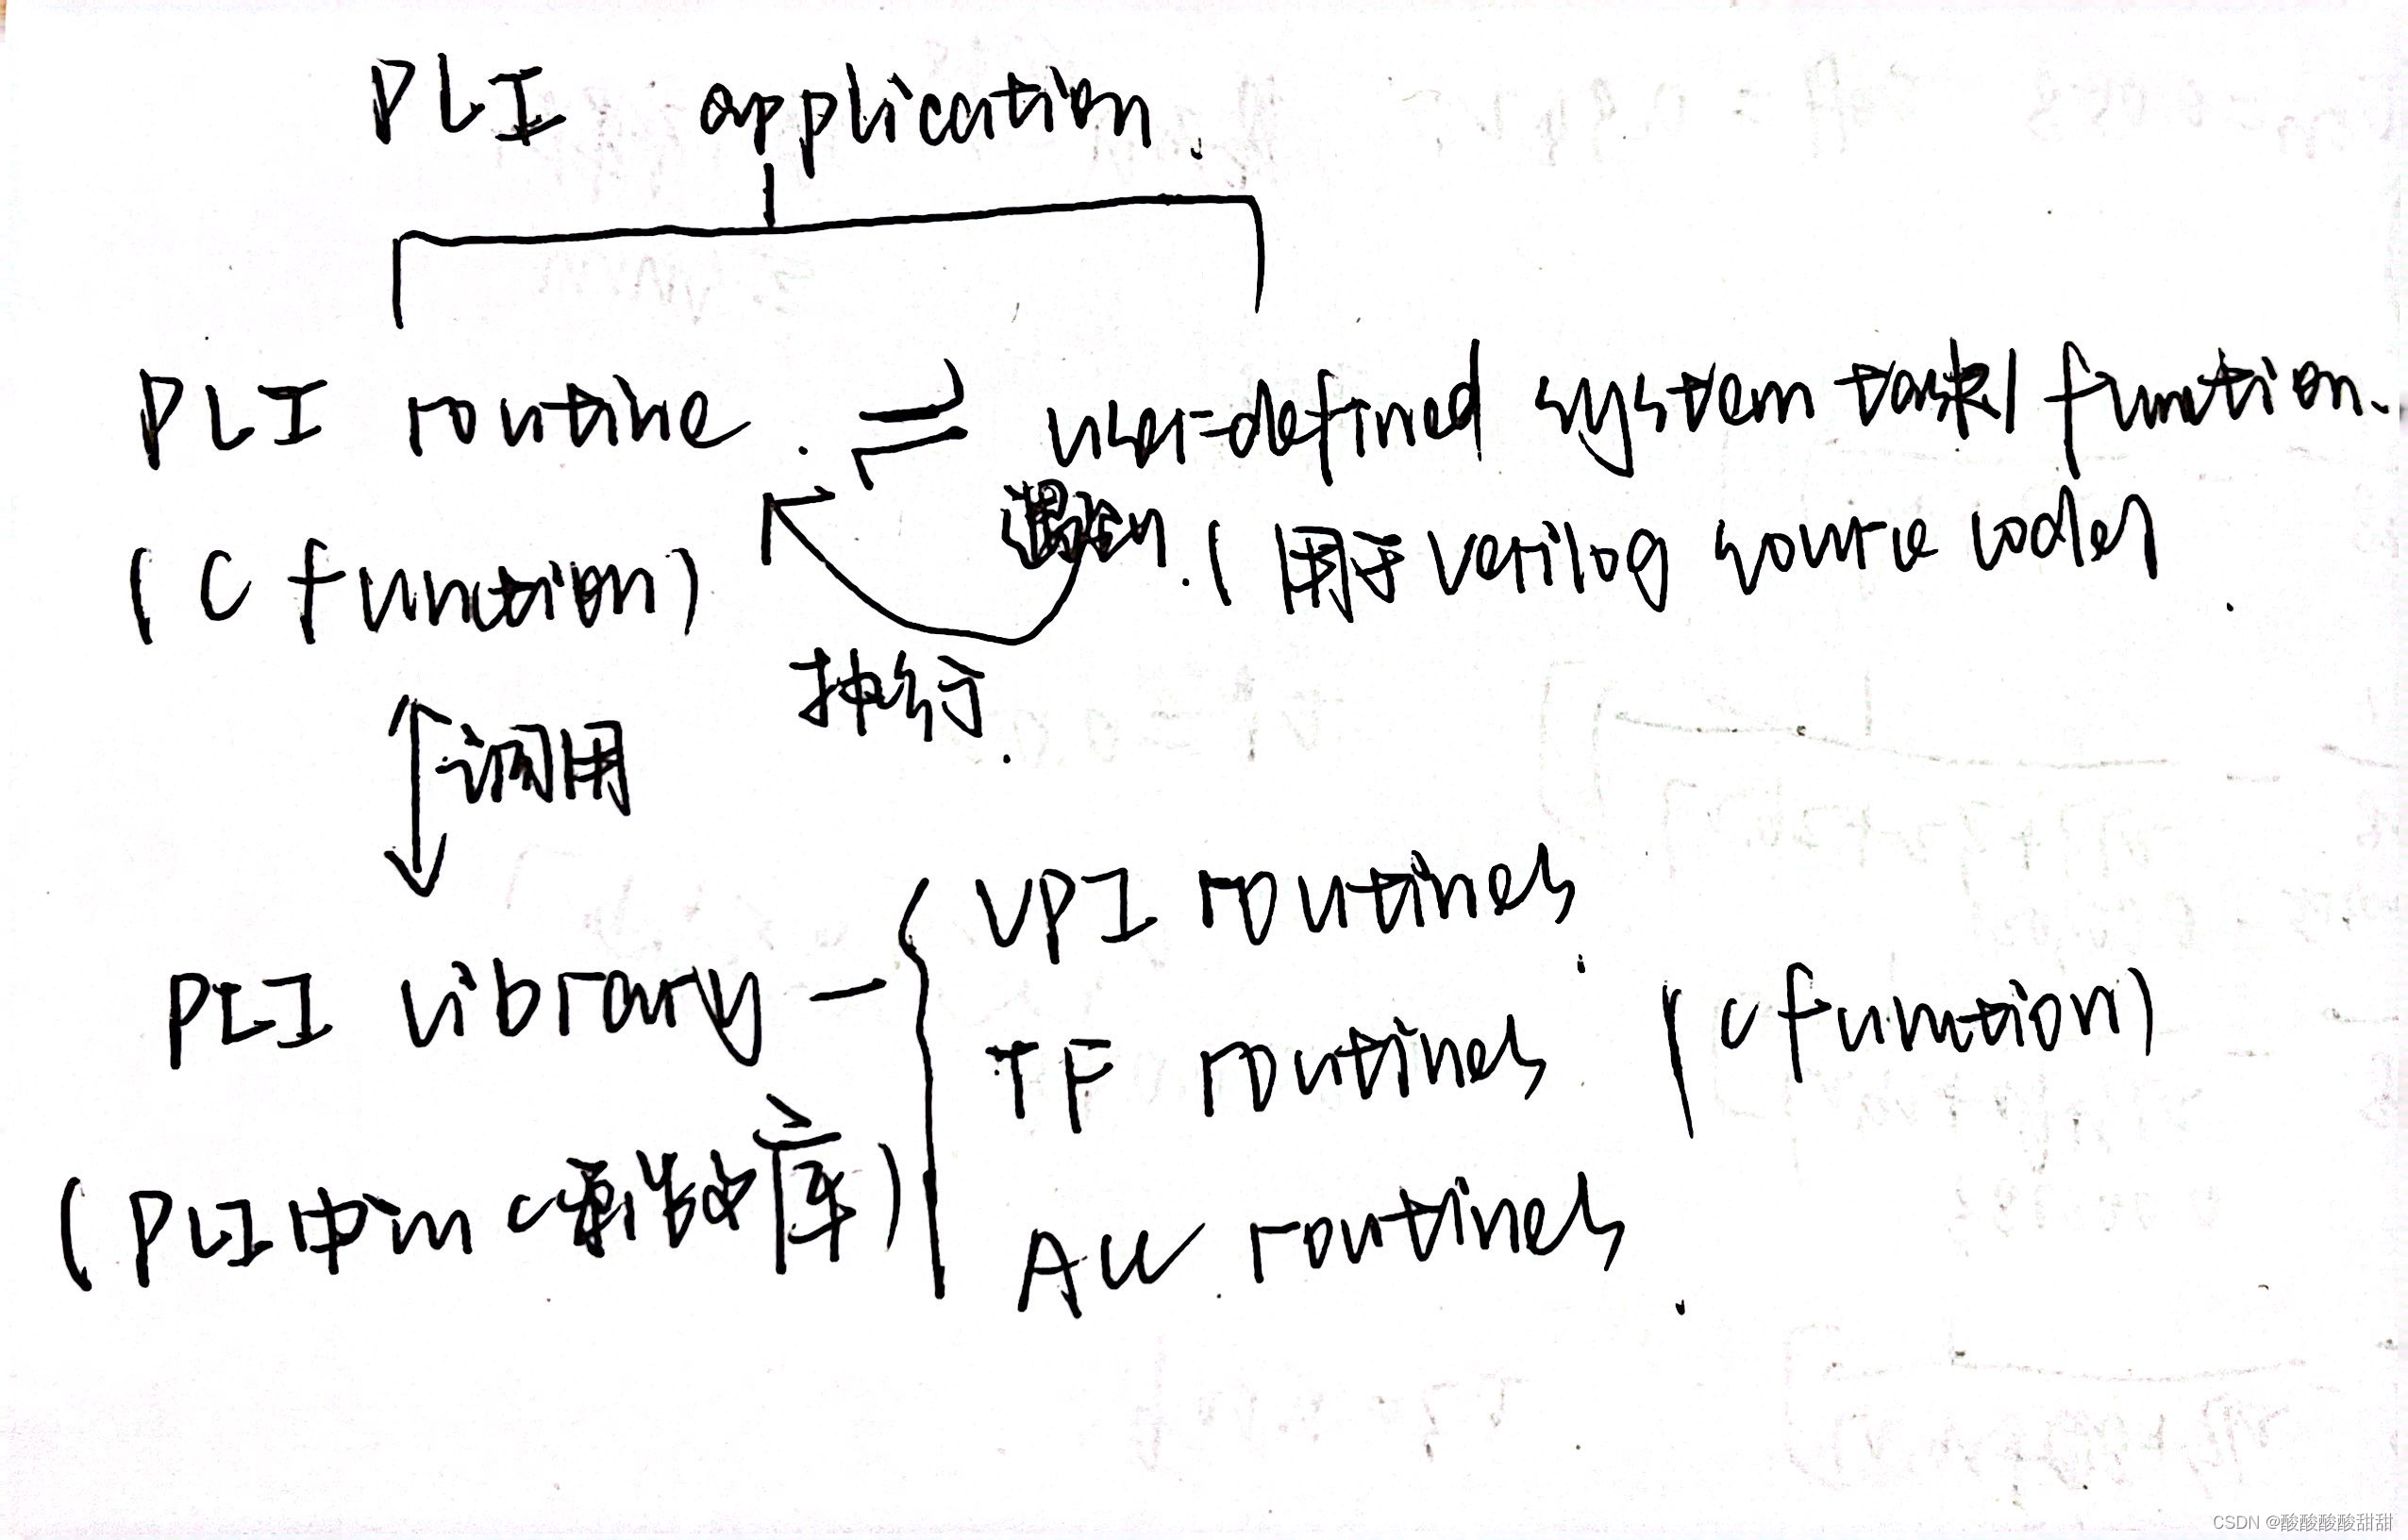 PLI application.
PLI routine. ⇌ user-defined system task/function.
(C function) 遇到. (用于verilog source code)
执行.
调用
PLI library — { VPI routines.
TF routines (C function)
(PLI中的C函数库) ACC routines.
CSDN @酸酸酸酸甜甜